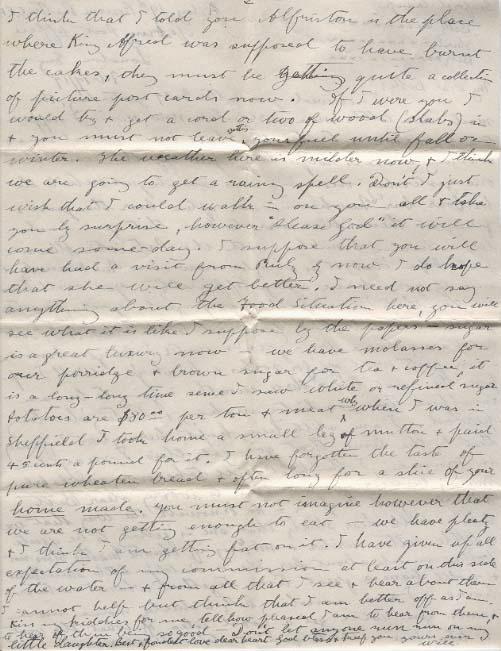 2
I think that I told you Alfriston is the place
where King Alfred was supposed to have burnt
the cakes, they must be getting quite a collection
of picture post cards now. If I were you I
would try & get a cord or two of woood (slabs) in
& you must not leave getting your fuel until fall or
winter. The weather here is milder now & I think
we are going to get a rainy spell. Don't I just
wish that I could walk in on you all & take
you by surprise, however "Please God" it will
come some-day. I suppose that you will
have had a visit from by now I do hope
that she will get better. I need not say
anything about the Food Situation here, you will
see what it is like I suppose by the papers - sugar
is a great luxury now we have molasses for
our porridge & brown sugar for tea & coffee, it
is a long-long time sense I saw white or refined sugar
potatoes are per ton & meat when I was in
Sheffield I took home a small leg of mutton & paid
45 cents a pound for it. I have forgotten the taste of
pure wheaten bread & often long for a slice of your
home made. you must not imagine however that
we are not getting enough to eat - we have plenty
& I think I am getting fat on it. I have given up all
expectation of my commission at least on this side
of the water - & from all that I see & hear about them
I cannot help but think that I am better off as I am.
Kiss my kiddies for me, tell how pleased I am to hear from them, &
to hear of them being so good. Don't let anyone run on my
little daughter. Best & fondest love dear heart God bless & keep you yours ever
Will